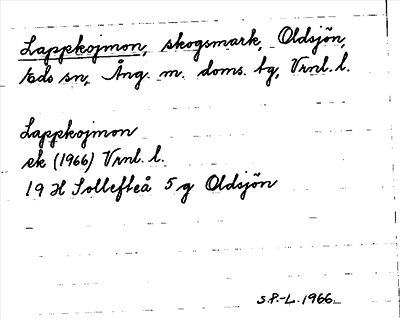 Lappkojmon, skogsmark, Oldsjön,
Eds sn, Ång. m. doms. bg, Vrnl. l.
Lappkojmon
ek (1966) Vrnl. l.
19 H Sollefteå 5 g Oldsjön
S.P.-L. 1966